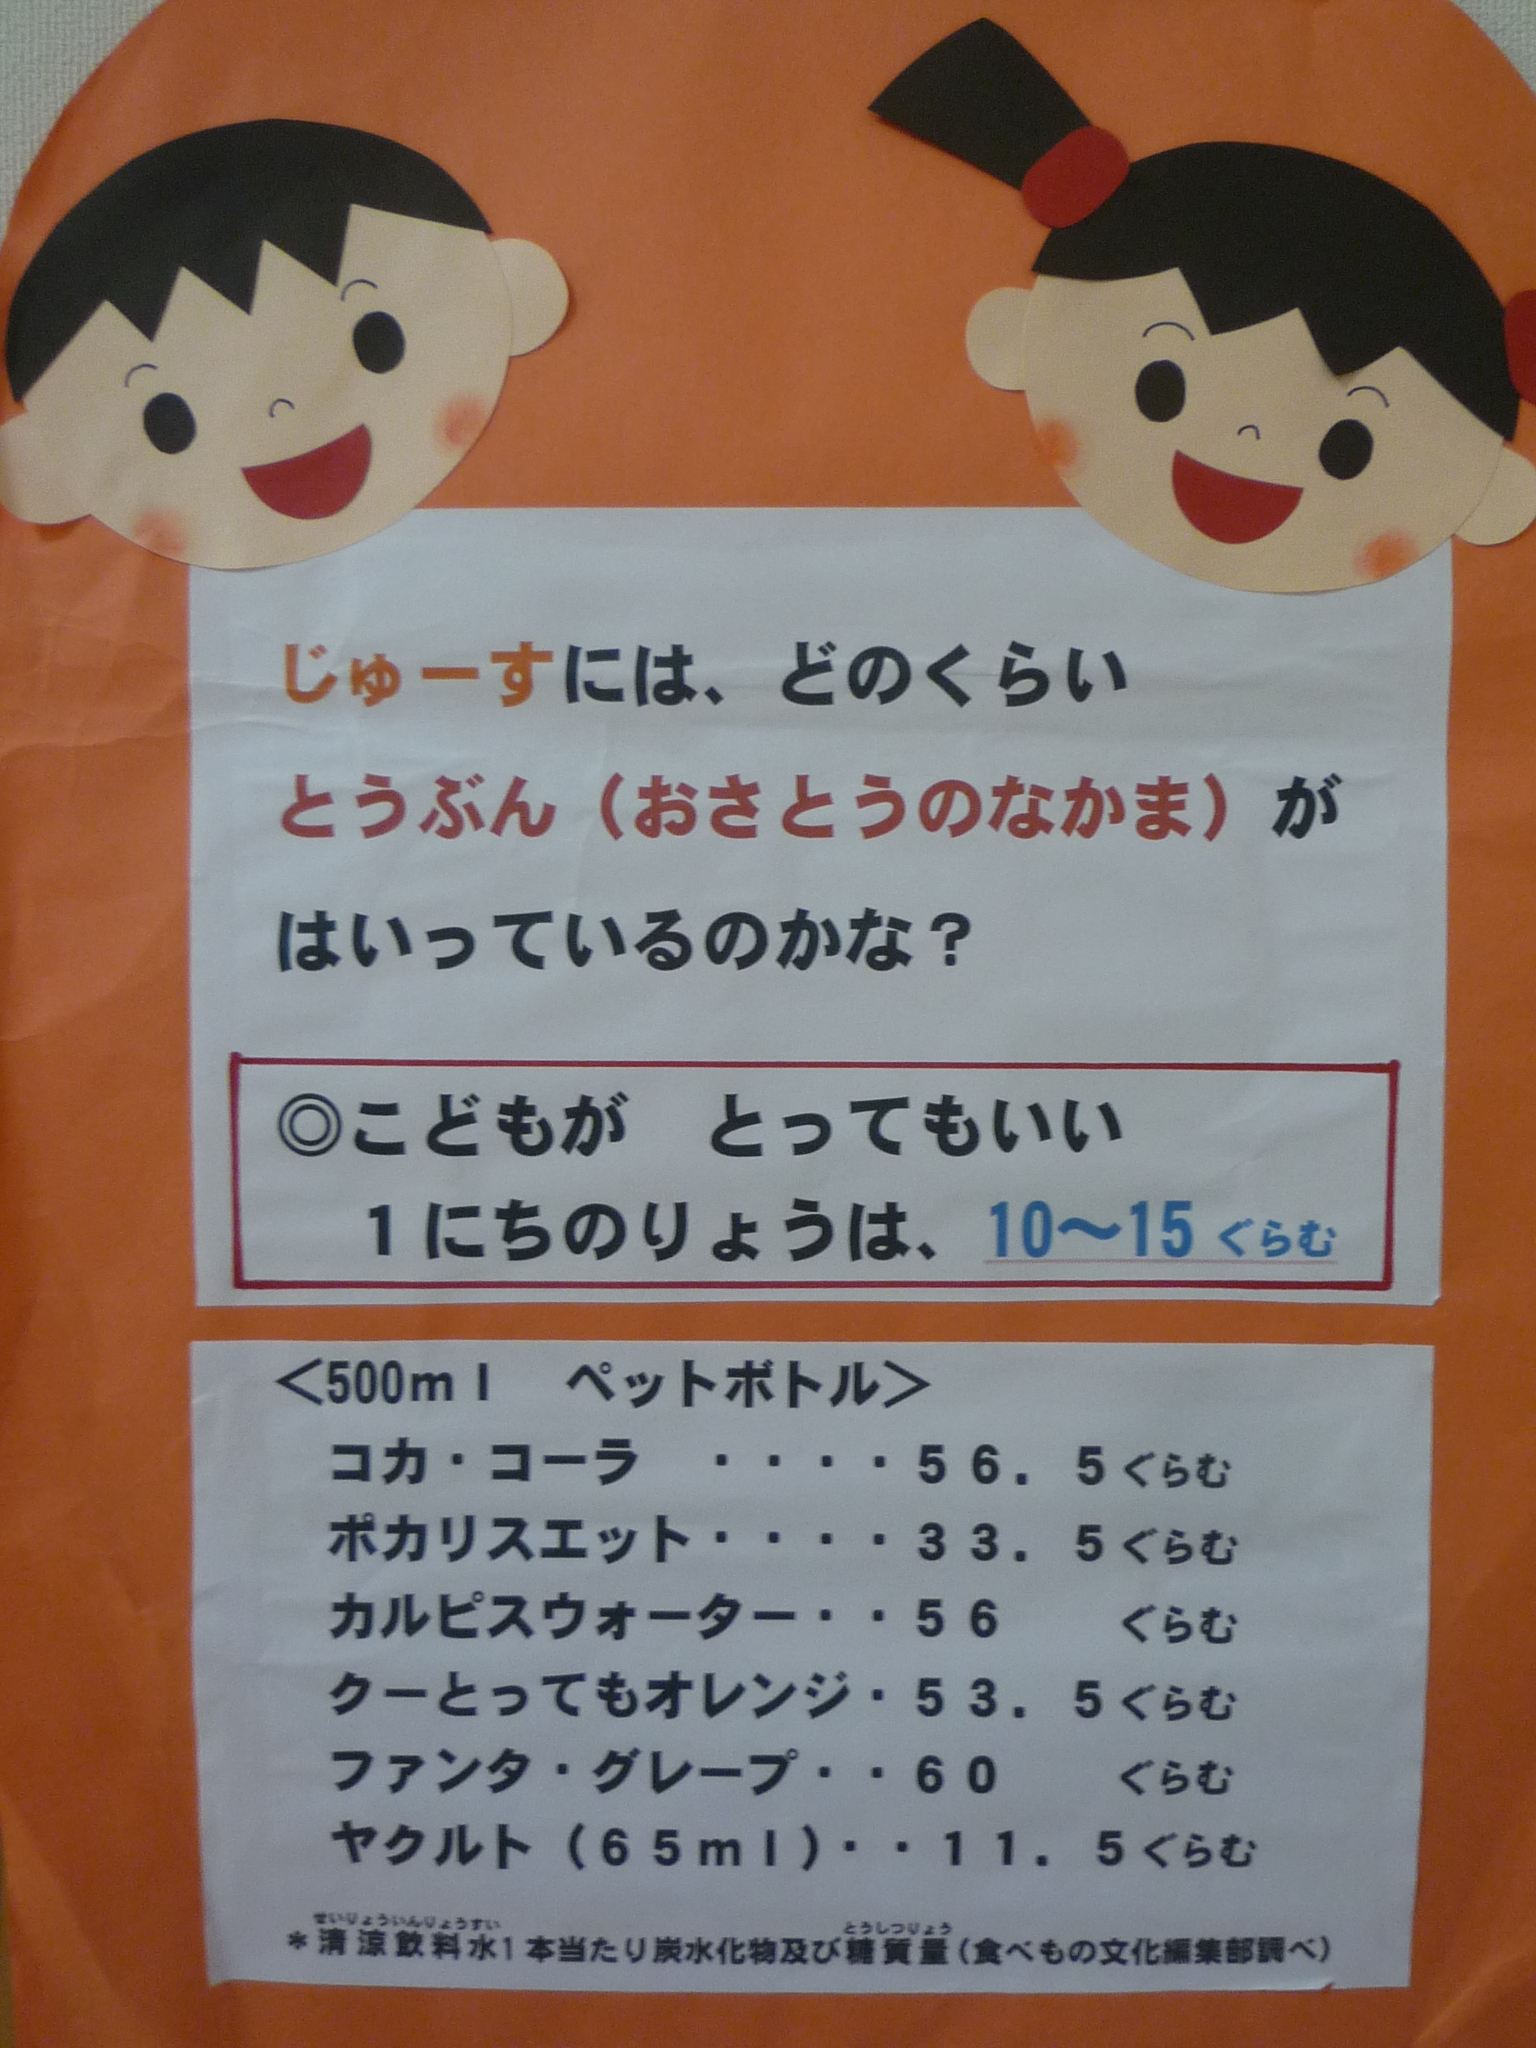 じゅーすには、どのくらい
とうぶん（おさとうのなかま）が
はいっているのかな？
◎こどもが　とってもいい
１にちのりょうは、10～15ぐらむ
＜500ｍｌ　ペットボトル＞
コカ・コーラ　・・・・５６．５ぐらむ
ポカリスエット・・・・３３．５ぐらむ
カルピスウォーター・・５６　　ぐらむ
クーとってもオレンジ・５３．５ぐらむ
ファンタ・グレープ・・６０　　ぐらむ
ヤクルト（６５ｍｌ）・・１１．５ぐらむ
せいりょういんりょうすい　とうしつりょう
＊清涼飲料水1本当たり炭水化物及び糖質量（食べもの文化編集部調べ）